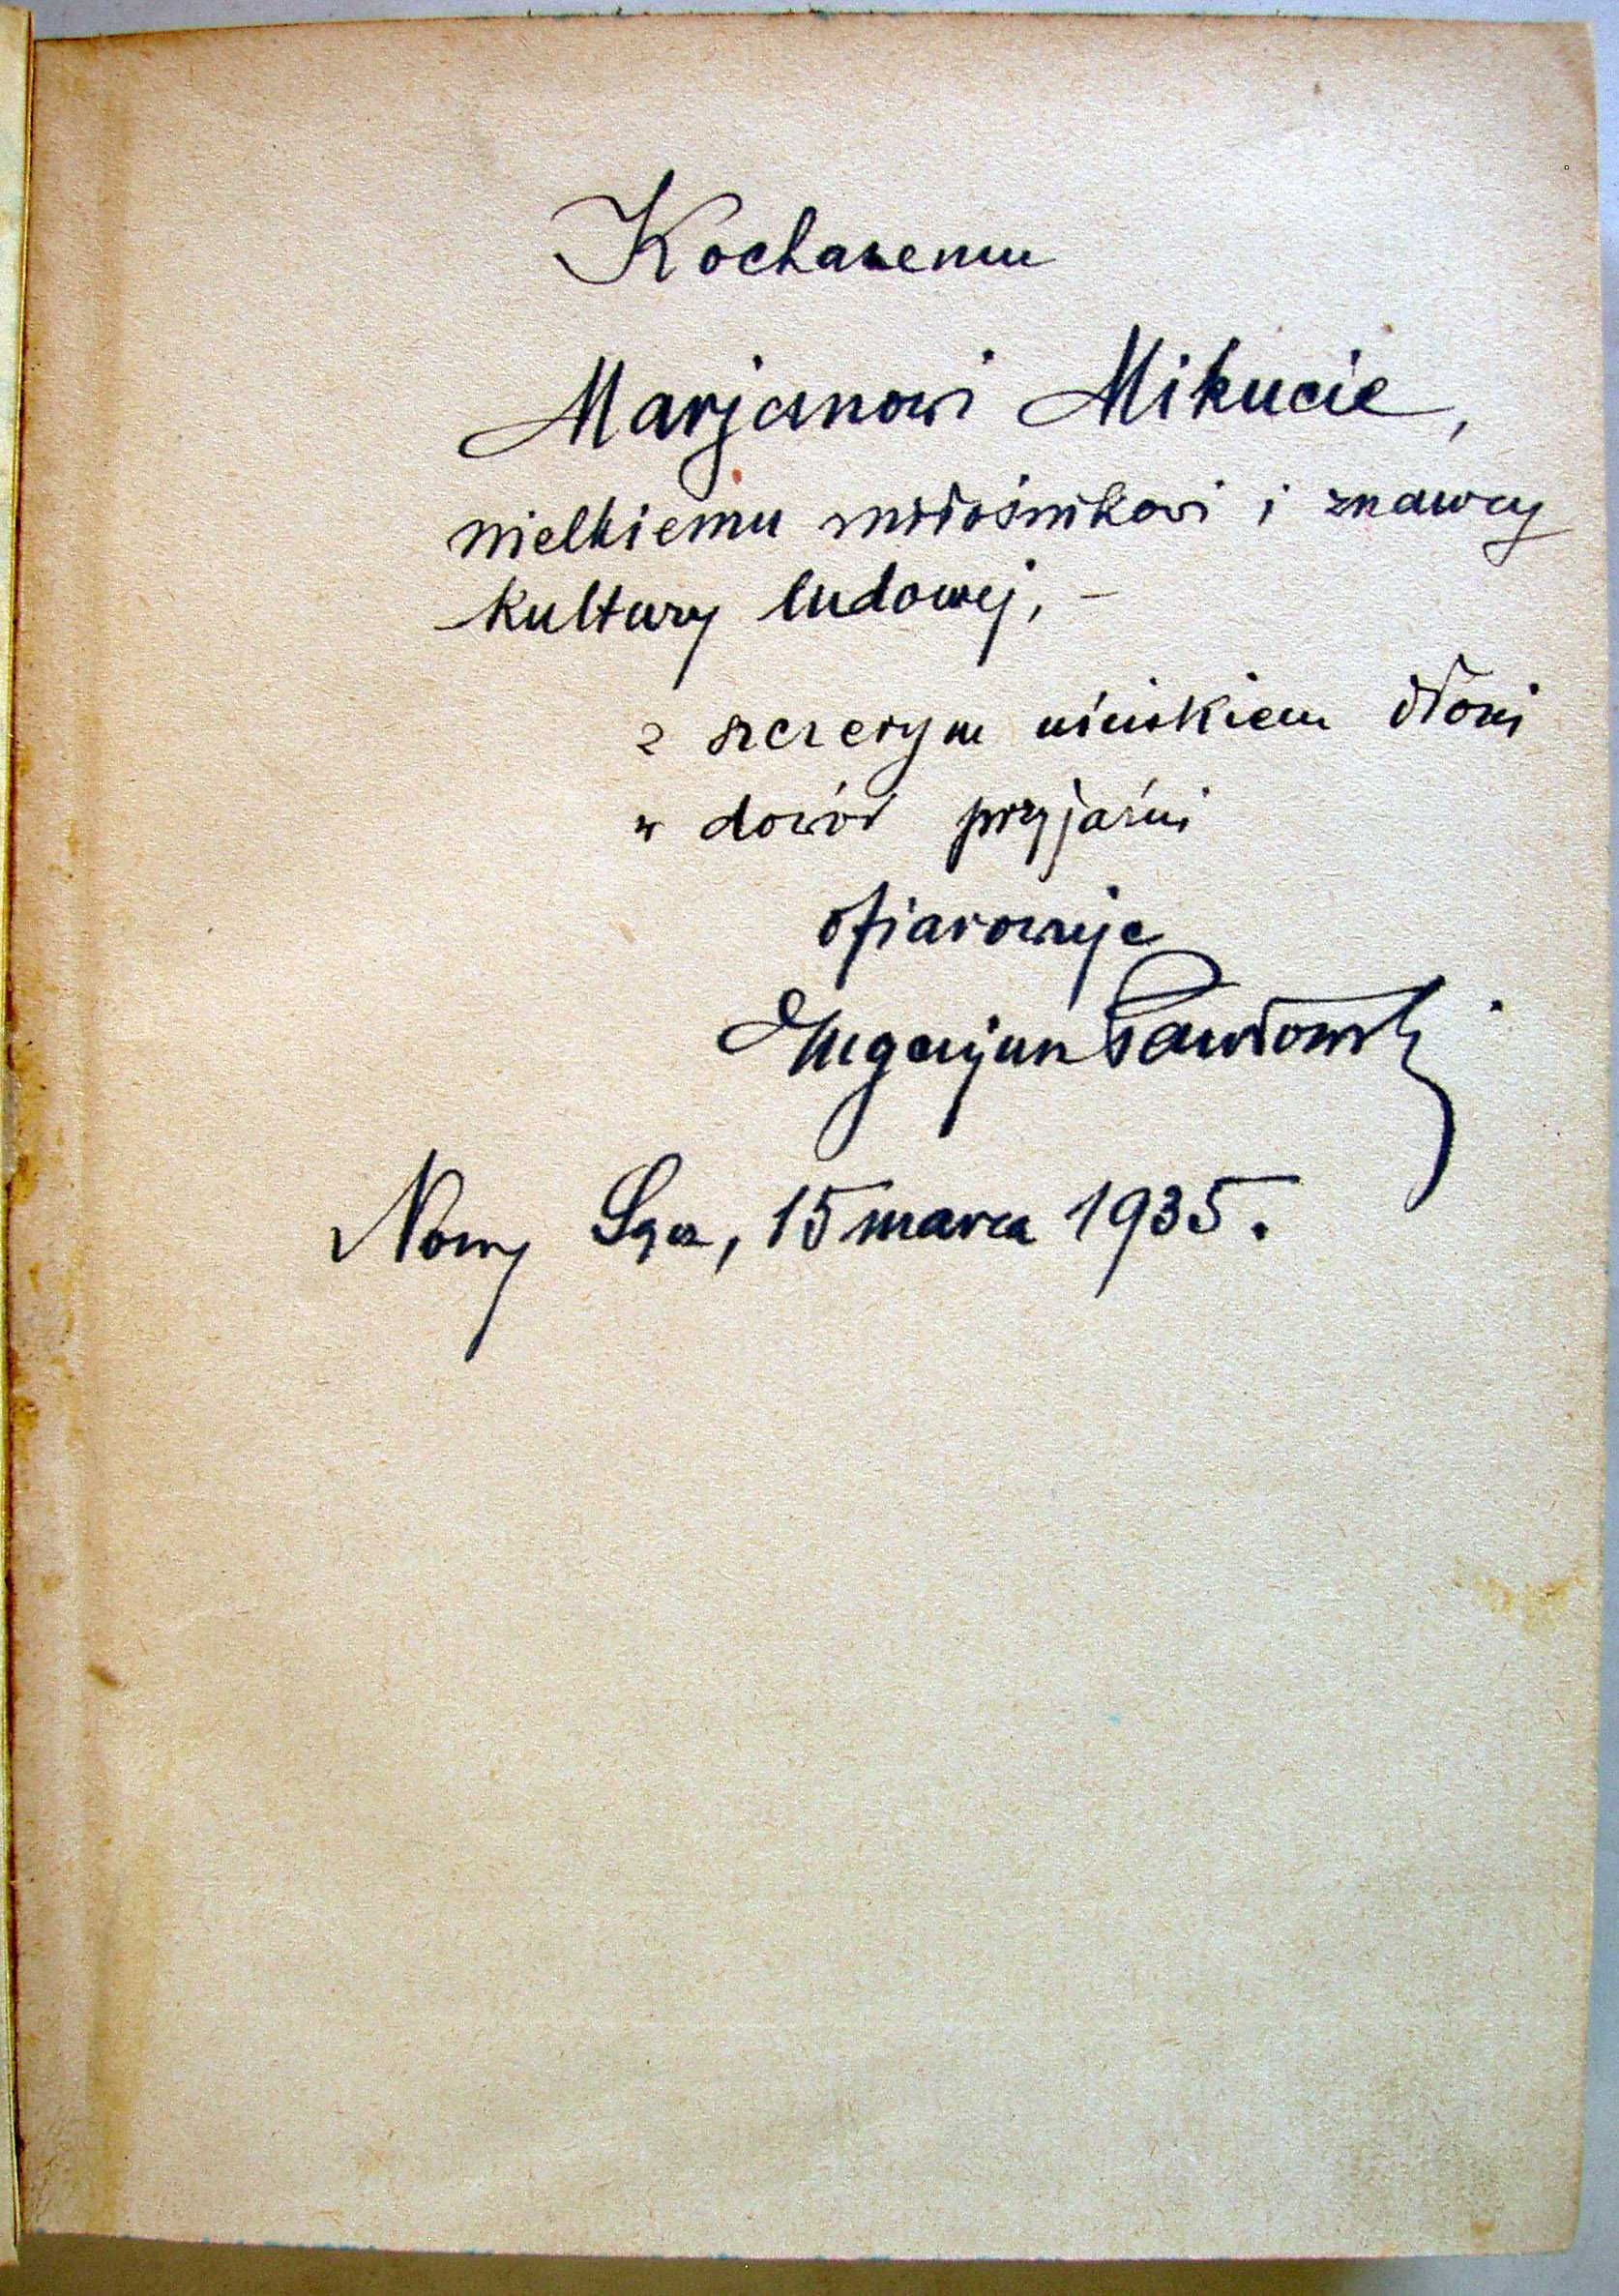 Kochanemu
Marjanowi Mikucie,
wielkiemu miłośnikowi i znawcy
kultury ludowej, –
z szczerym uściskiem dłoni
w dowód przyjaźni
ofiarowuje
Eugenjusz Pawłowski
Nowy Sącz, 15 marca 1935.